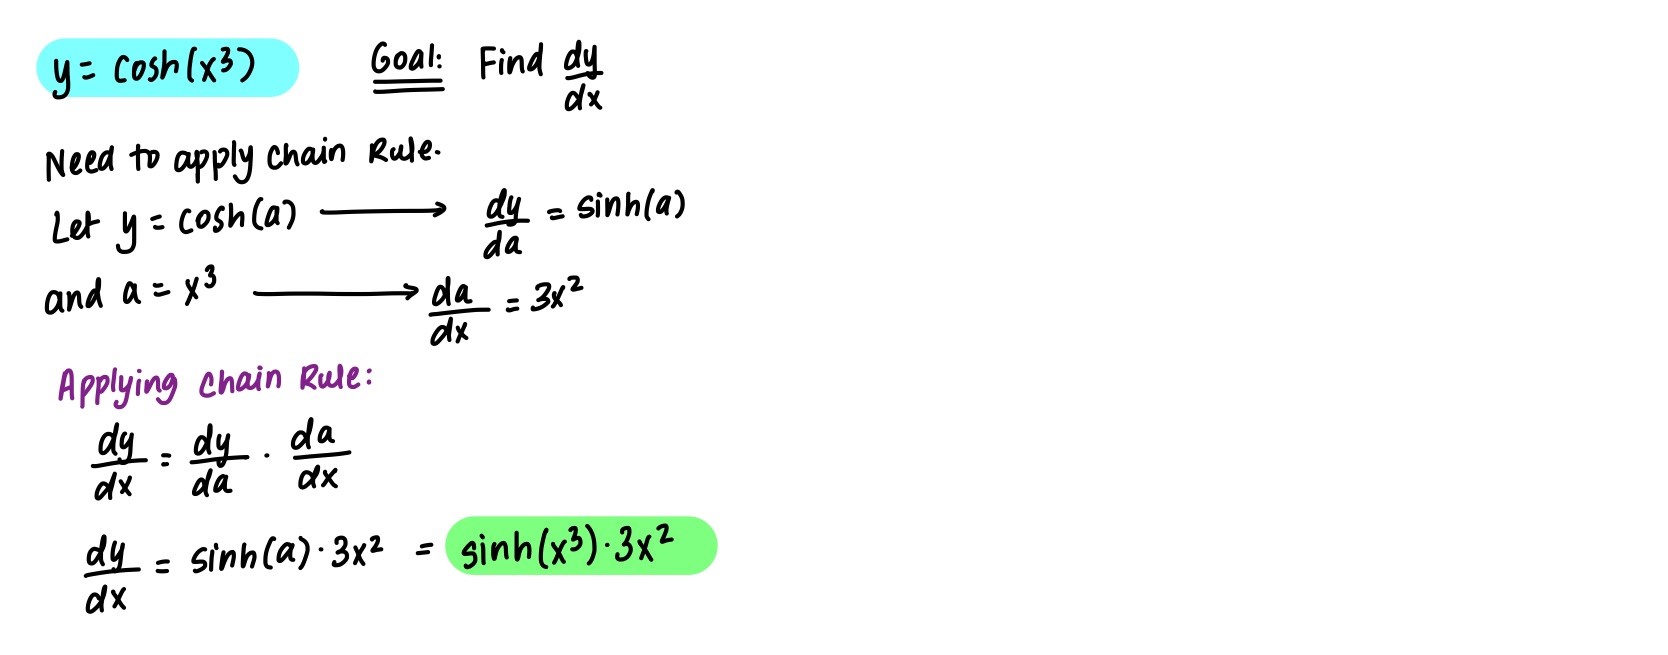 y = cosh(x³) Goal: Find dy/dx
Need to apply chain Rule.
Let y = cosh(a) ⟶ dy/da = sinh(a)
and a = x³ ⟶ da/dx = 3x²
Applying chain Rule:
dy/dx = dy/da · da/dx
dy/dx = sinh(a) · 3x² = sinh(x³) · 3x²